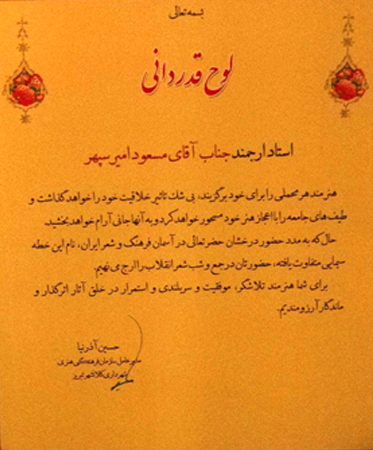 بسمه تعالی
لوح قدردانی
استاد ارجمند جناب آقای مسعود امیر سپهر
هنرمند هر محملی را برای خود برگزیند، بی شک تاثیر خلاقیت خود را خواهد گذاشت و
طیف های جامعه را با اعجاز هنر خود مسحور خواهد کرد و به آنها جانی آرام خواهد بخشید.
حال که به مدد حضور درخشان حضرتعالی در آسمان فرهنگ و شعر ایران، نام این خطه
سیمایی متفاوت یافته، حضورتان در جمع و شب شعر انقلاب را ارج می نهیم.
برای شما هنرمند تلاشگر، موفقیت و سربلندی و استمرار در خلق آثار اثرگذار و
ماندگار آرزومندیم.
حسین آذرنیا
مدیرعامل سازمان فرهنگی هنری
شهرداری کلانشهر تبریز